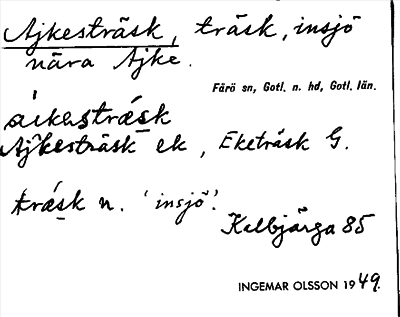 Ajkesträsk, träsk, insjö
nära Ajke.
Fårö sn, Gotl. n. hd, Gotl. län.
áikestræsk
Ajkesträsk ek, Eketräsk G.
træsk n. 'insjö'.
Kalbjärga 85
INGEMAR OLSSON 1949.